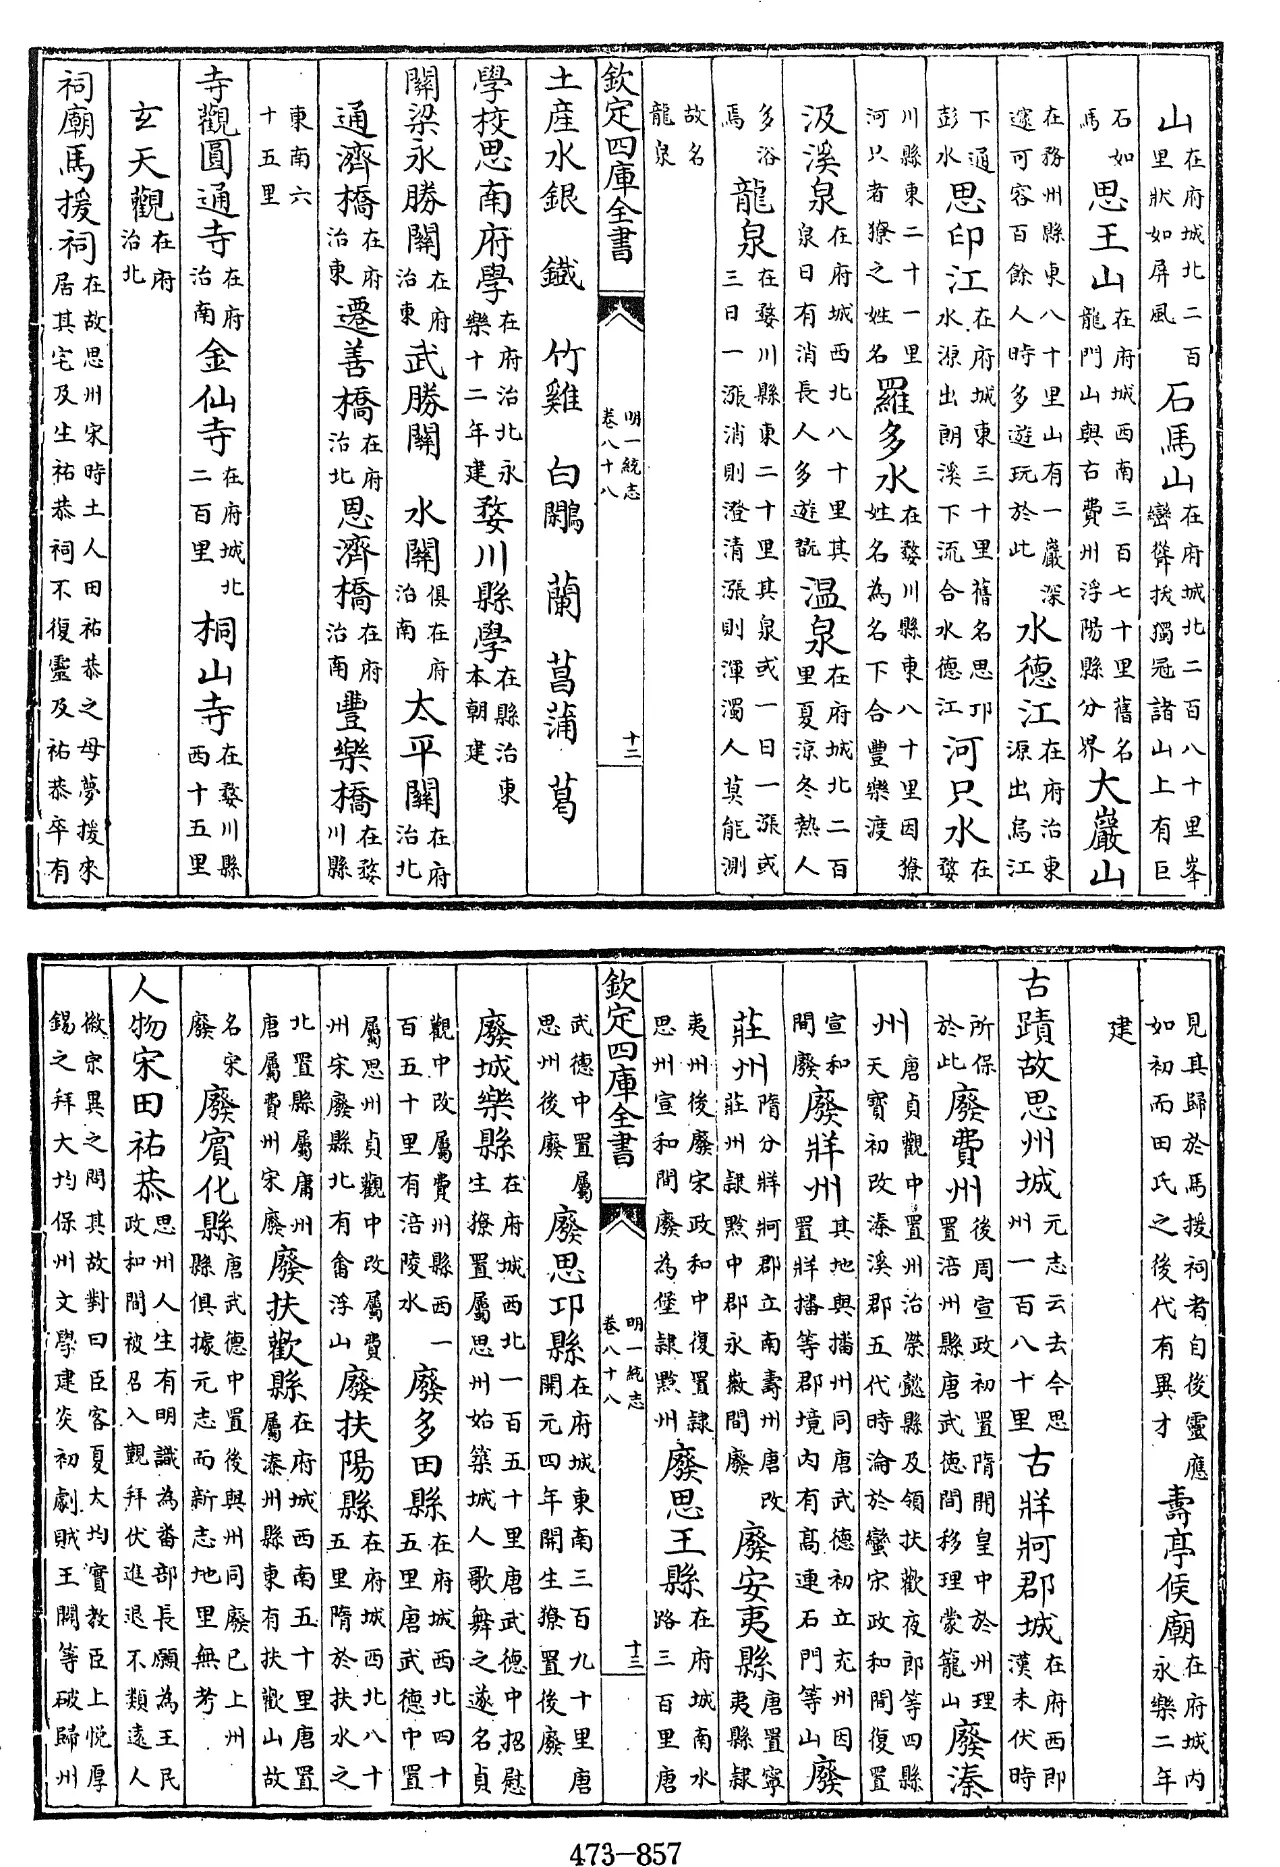 山在府城北二百里狀如屏風石馬山在府城北二百八十里峯巒聳拔獨冠諸山上有巨
石如馬思王山在府城西南三百七十里舊名龍門山與古費州浮陽縣分界大巖山
在務州縣東八十里山有一巖深邃可容百餘人時多遊玩於此水德江在府治東源出烏江
下通彭水思印江在府城東三十里舊名思卭水源出朗溪下流合水德江河只水在婺
川縣東二十一里河只者獠之姓名羅多水在婺川縣東八十里因獠姓名為名下合豐樂渡
汲溪泉在府城西北八十里其泉日有消長人多遊翫温泉在府城北二百里夏涼冬熱人
多浴焉龍泉在婺川縣東二十里其泉或一日一漲或三日一漲消則澄清漲則渾濁人莫能測
故名龍泉
欽定四庫全書 明一統志 卷八十八 十二
土産水銀 鐵 竹雞 白鷴 蘭 菖蒲 葛
學校思南府學在府治北永樂十二年建婺川縣學在縣治東本朝建
關梁永勝關在府治東武勝關 水關俱在府治南太平關在府治北
通濟橋在府治東遷善橋在府治北恩濟橋在府治南豐樂橋在婺川縣
東南六十五里
寺觀圓通寺在府治南金仙寺在府城北二百里桐山寺在婺川縣西十五里
玄天觀在府治北
祠廟馬援祠在故思州宋時土人田祐恭之母夢援來居其宅及生祐恭祠不復靈及祐恭卒有
見其歸於馬援祠者自後靈應如初而田氏之後代有異才壽亭侯廟在府城内永樂二年
建
古蹟故思州城元志云去今思州一百八十里古牂牁郡城在府西即漢末伏時
所保於此廢費州後周宣政初置隋開皇中於州理置涪州縣唐武徳間移理蒙籠山廢溱
州唐貞觀中置州治榮懿縣及領扶歡夜郎等四縣天寶初改溱溪郡五代時淪於蠻宋政和間復置
宣和間廢廢牂州其地與播州同唐武德初立充州因置牂播等郡境内有高連石門等山廢
莊州隋分牂牁郡立南壽州唐改莊州隸黔中郡永徽間廢廢安夷縣唐置寧夷縣隸
夷州後廢宋政和中復置隸思州宣和間廢為堡隸黔州廢思王縣在府城南水路三百里唐
欽定四庫全書 明一統志 卷八十八 十三
武德中置屬思州後廢廢思卭縣在府城東南三百九十里唐開元四年開生獠置後廢
廢城樂縣在府城西北一百五十里唐武德中招慰生獠置屬思州始築城人歌舞之遂名貞
觀中改屬費州縣西一百五十里有涪陵水廢多田縣在府城西北四十五里唐武德中置
屬思州貞觀中改屬費州宋廢縣北有畲浮山廢扶陽縣在府城西北八十五里隋於扶水之
北置縣屬庸州唐屬費州宋廢廢扶歡縣在府城西南五十里唐置屬溱州縣東有扶歡山故
名宋廢廢賓化縣唐武德中置後與州同廢已上州縣俱據元志而新志地里無考
人物宋田祐恭思州人生有明識為畨部長願為王民政和間被召入覲拜伏進退不類遠人
徽宗異之問其故對曰臣客夏大均實教臣上悦厚錫之拜大均保州文學建炎初劇賊王闢等破歸州
473-857